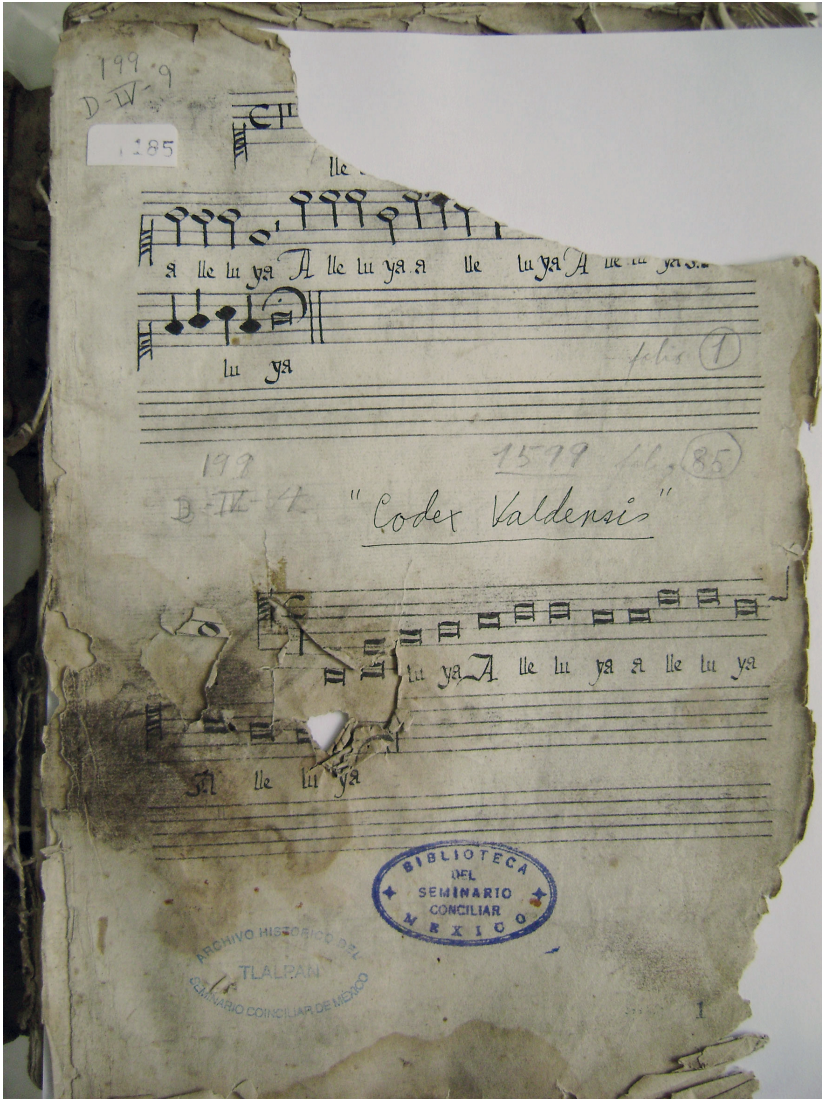 199 9
D-IV-
185
lle
a lle lu ya A lle lu ya a lle lu ya A lle lu ya
lu ya
folio 1
199 1599 folio 85
D-IV-
"Codex Valdensis"
lu ya A lle lu ya a lle lu ya
A lle lu ya
BIBLIOTECA
DEL
SEMINARIO
CONCILIAR
MEXICO
ARCHIVO HISTORICO DEL
TLALPAN
SEMINARIO COINCILIAR DE MEXICO
1